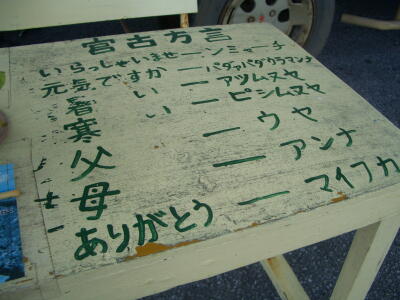 宮古方言
いらっしゃいませ ー ンミャーチ
元気ですか ー パダァパダカラマンナ
暑い ー アツムヌヤ
寒い ー ピシムヌヤ
父 ー ウヤ
母 ー アンナ
ありがとう ー マイフカ